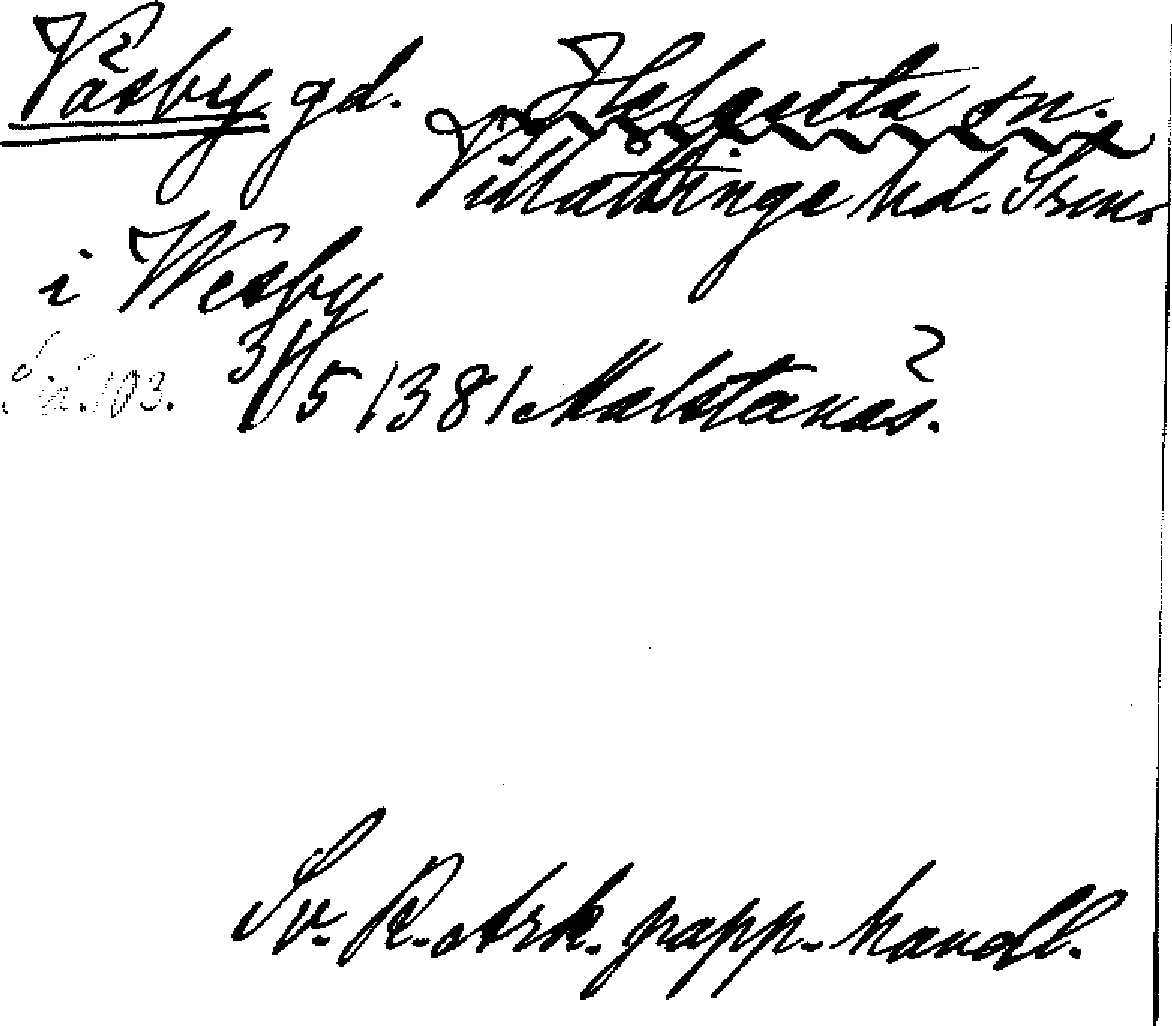 Väsby gd. Helgesta sn.
Villåttinge hd. Srm.
i Wesby
Sd. 103. 31/5 1381 Malstanäs. ?
Sv. R. Ark. papp. handl.